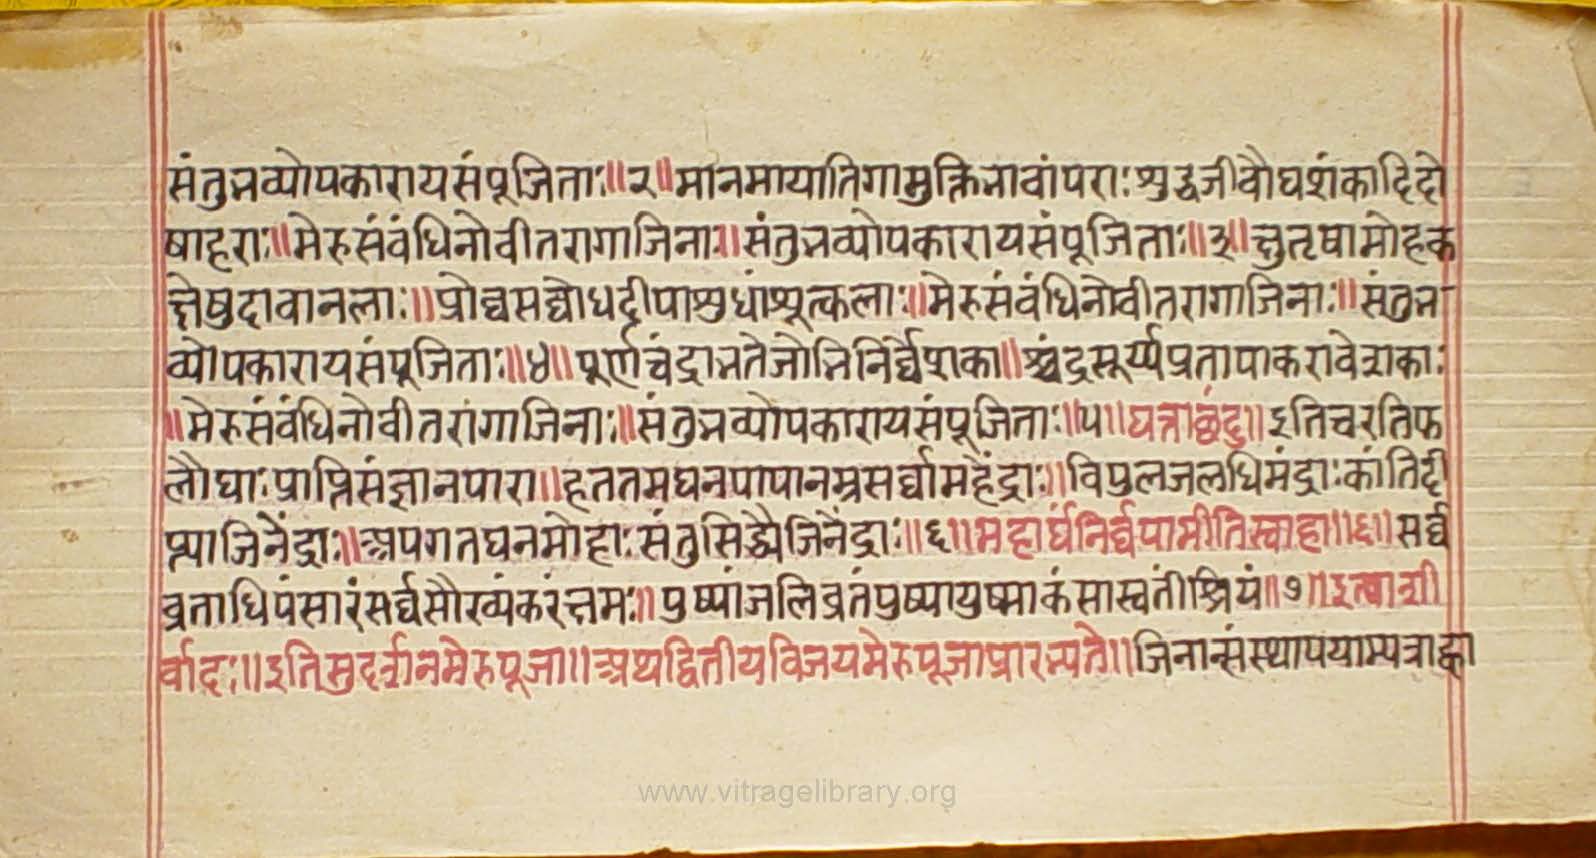 संतुनव्योपकारायसंपूजिताः॥२॥मानमायातिगामुक्तिनावांपराःशुद्धजीवौघशंकादिदो
षाहराः॥मेरुसंवंधिनोवीतरागाजिनाः॥संतुनव्योपकारायसंपूजिताः॥३॥क्षुतृषामोहक
क्षेषुदावानलाः॥प्रोच्चसद्योधदीपाशुधांशूत्कलाः॥मेरुसंवंधिनोवीतरागाजिनाः॥संतुन
व्योपकारायसंपूजिताः॥४॥पूर्णचंद्रानतेजोनिनिर्वेशका॥श्चंद्रसूर्य्यप्रतापाकरावेशकाः
॥मेरुसंवंधिनोवीतरांगाजिनाः॥संतुनव्योपकारायसंपूजिताः॥५॥घत्ताछंदु॥इतिचरतिफ
लौघाःप्राप्तिसंज्ञानपारा॥हततमघनपापानम्रसर्व्वामहेंद्राः॥विपुलजलधिमंद्राःकांतिदी
प्त्याजिनेंद्राः॥अपगतघनमोहाःसंतुसिद्ध्यैजिनेंद्राः॥६॥महार्घंनिर्व्वपामीतिस्वाहा॥६॥सर्व्व
व्रताधिपंसारंसर्व्वसौख्यंकरंत्तमः॥पुष्पांजलिव्रतंपुष्पायुष्माकंसास्वतींश्रियं॥७॥इत्याशी
र्वादः॥इतिसुदर्शनमेरुपूजा॥अथद्वितीयविजयमेरुपूजाप्रारभ्यते॥जिनान्संस्थापयाम्यत्राह्वा
www.vitragelibrary.org